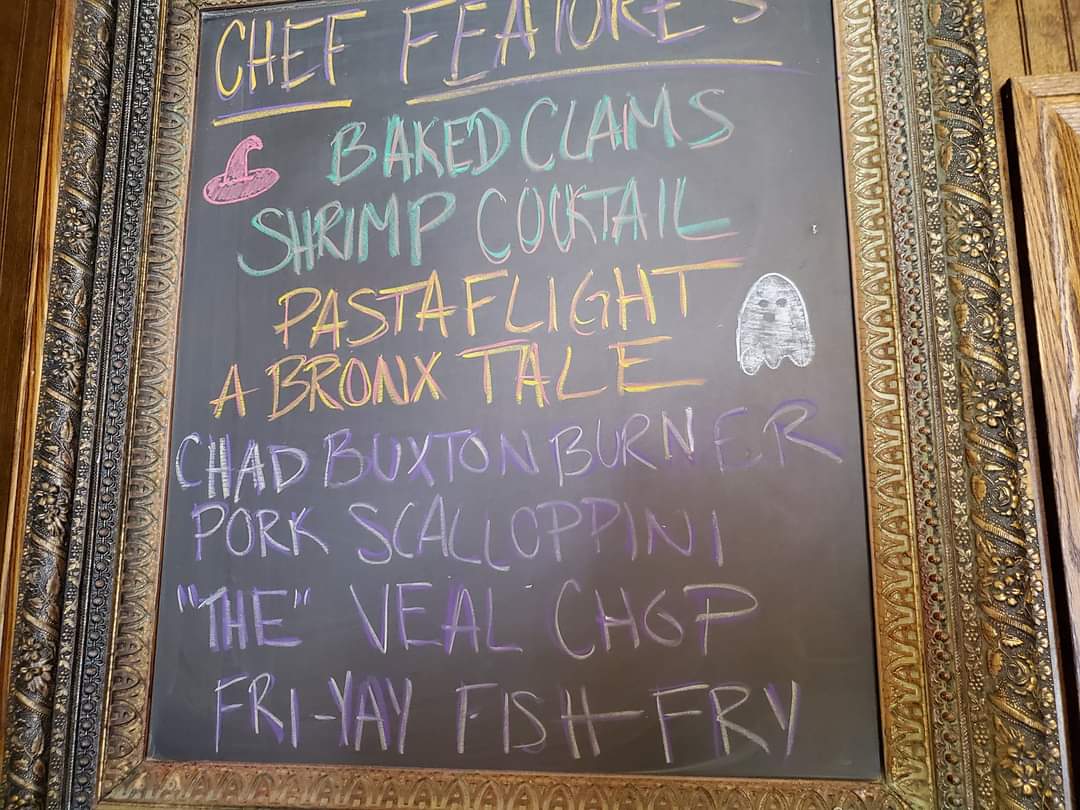 CHEF FEATURES
BAKED CLAMS
SHRIMP COCKTAIL
PASTA FLIGHT
A BRONX TALE
CHAD BUXTON BURNER
PORK SCALLOPPINI
"THE" VEAL CHOP
FRI-YAY FISH FRY